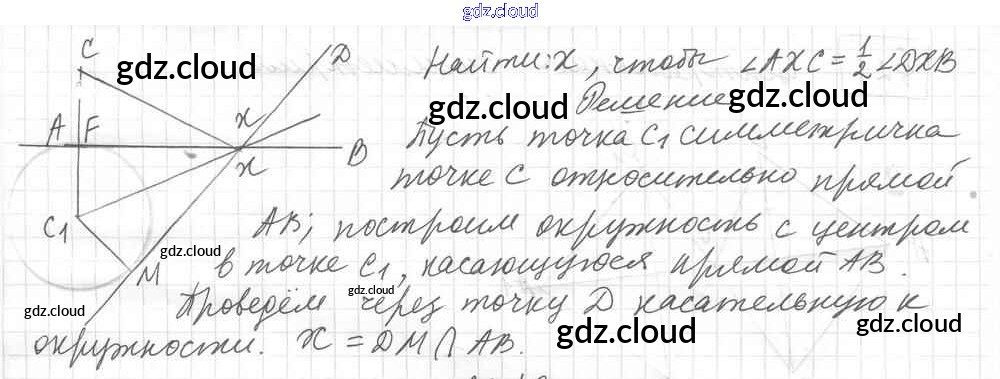 gdz.cloud
C D Найти: X, чтобы ∠AXC = 1/2 ∠DXB
gdz.cloud gdz.cloud gdz.cloud
Решение
A F x B Пусть точка C₁ симметрична
x точке C относительно прямой
C₁ AB; построим окружность с центром
gdz.cloud
M в точке C₁, касающуюся прямой AB.
gdz.cloud
Проведём через точку D касательную к
gdz.cloud gdz.cloud gdz.cloud
окружности. X = DM ∩ AB.
gdz.cloud